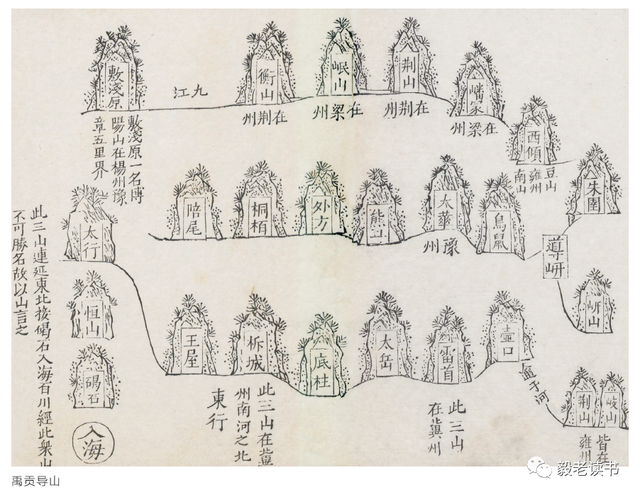 導岍
岍山
岐山
荆山
皆在
雍州
逾于河
壺口
雷首
太岳
此三山
在冀州
底柱
析城
王屋
此三山在冀
州南河之北
東行
太行
恒山
碣石
入海
此三山連延東北接碣石入海百川經此衆山
不可勝名故以山言之
朱圉
鳥鼠
太華
豫州
外方
桐栢
陪尾
西傾
雍州
南山
嶓冢
在梁州
荆山
在荆州
岷山
在梁州
衡山
在荆州
九江
敷淺原
敷淺原一名博
陽山在楊州豫
章五里界
禹贡导山
毅老读书